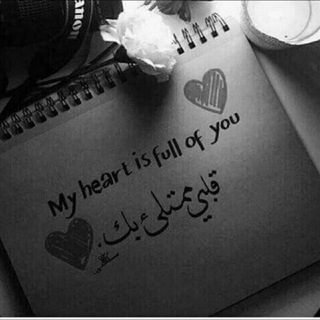 Canon
My heart is full of you
قلبي ممتلئ بك.